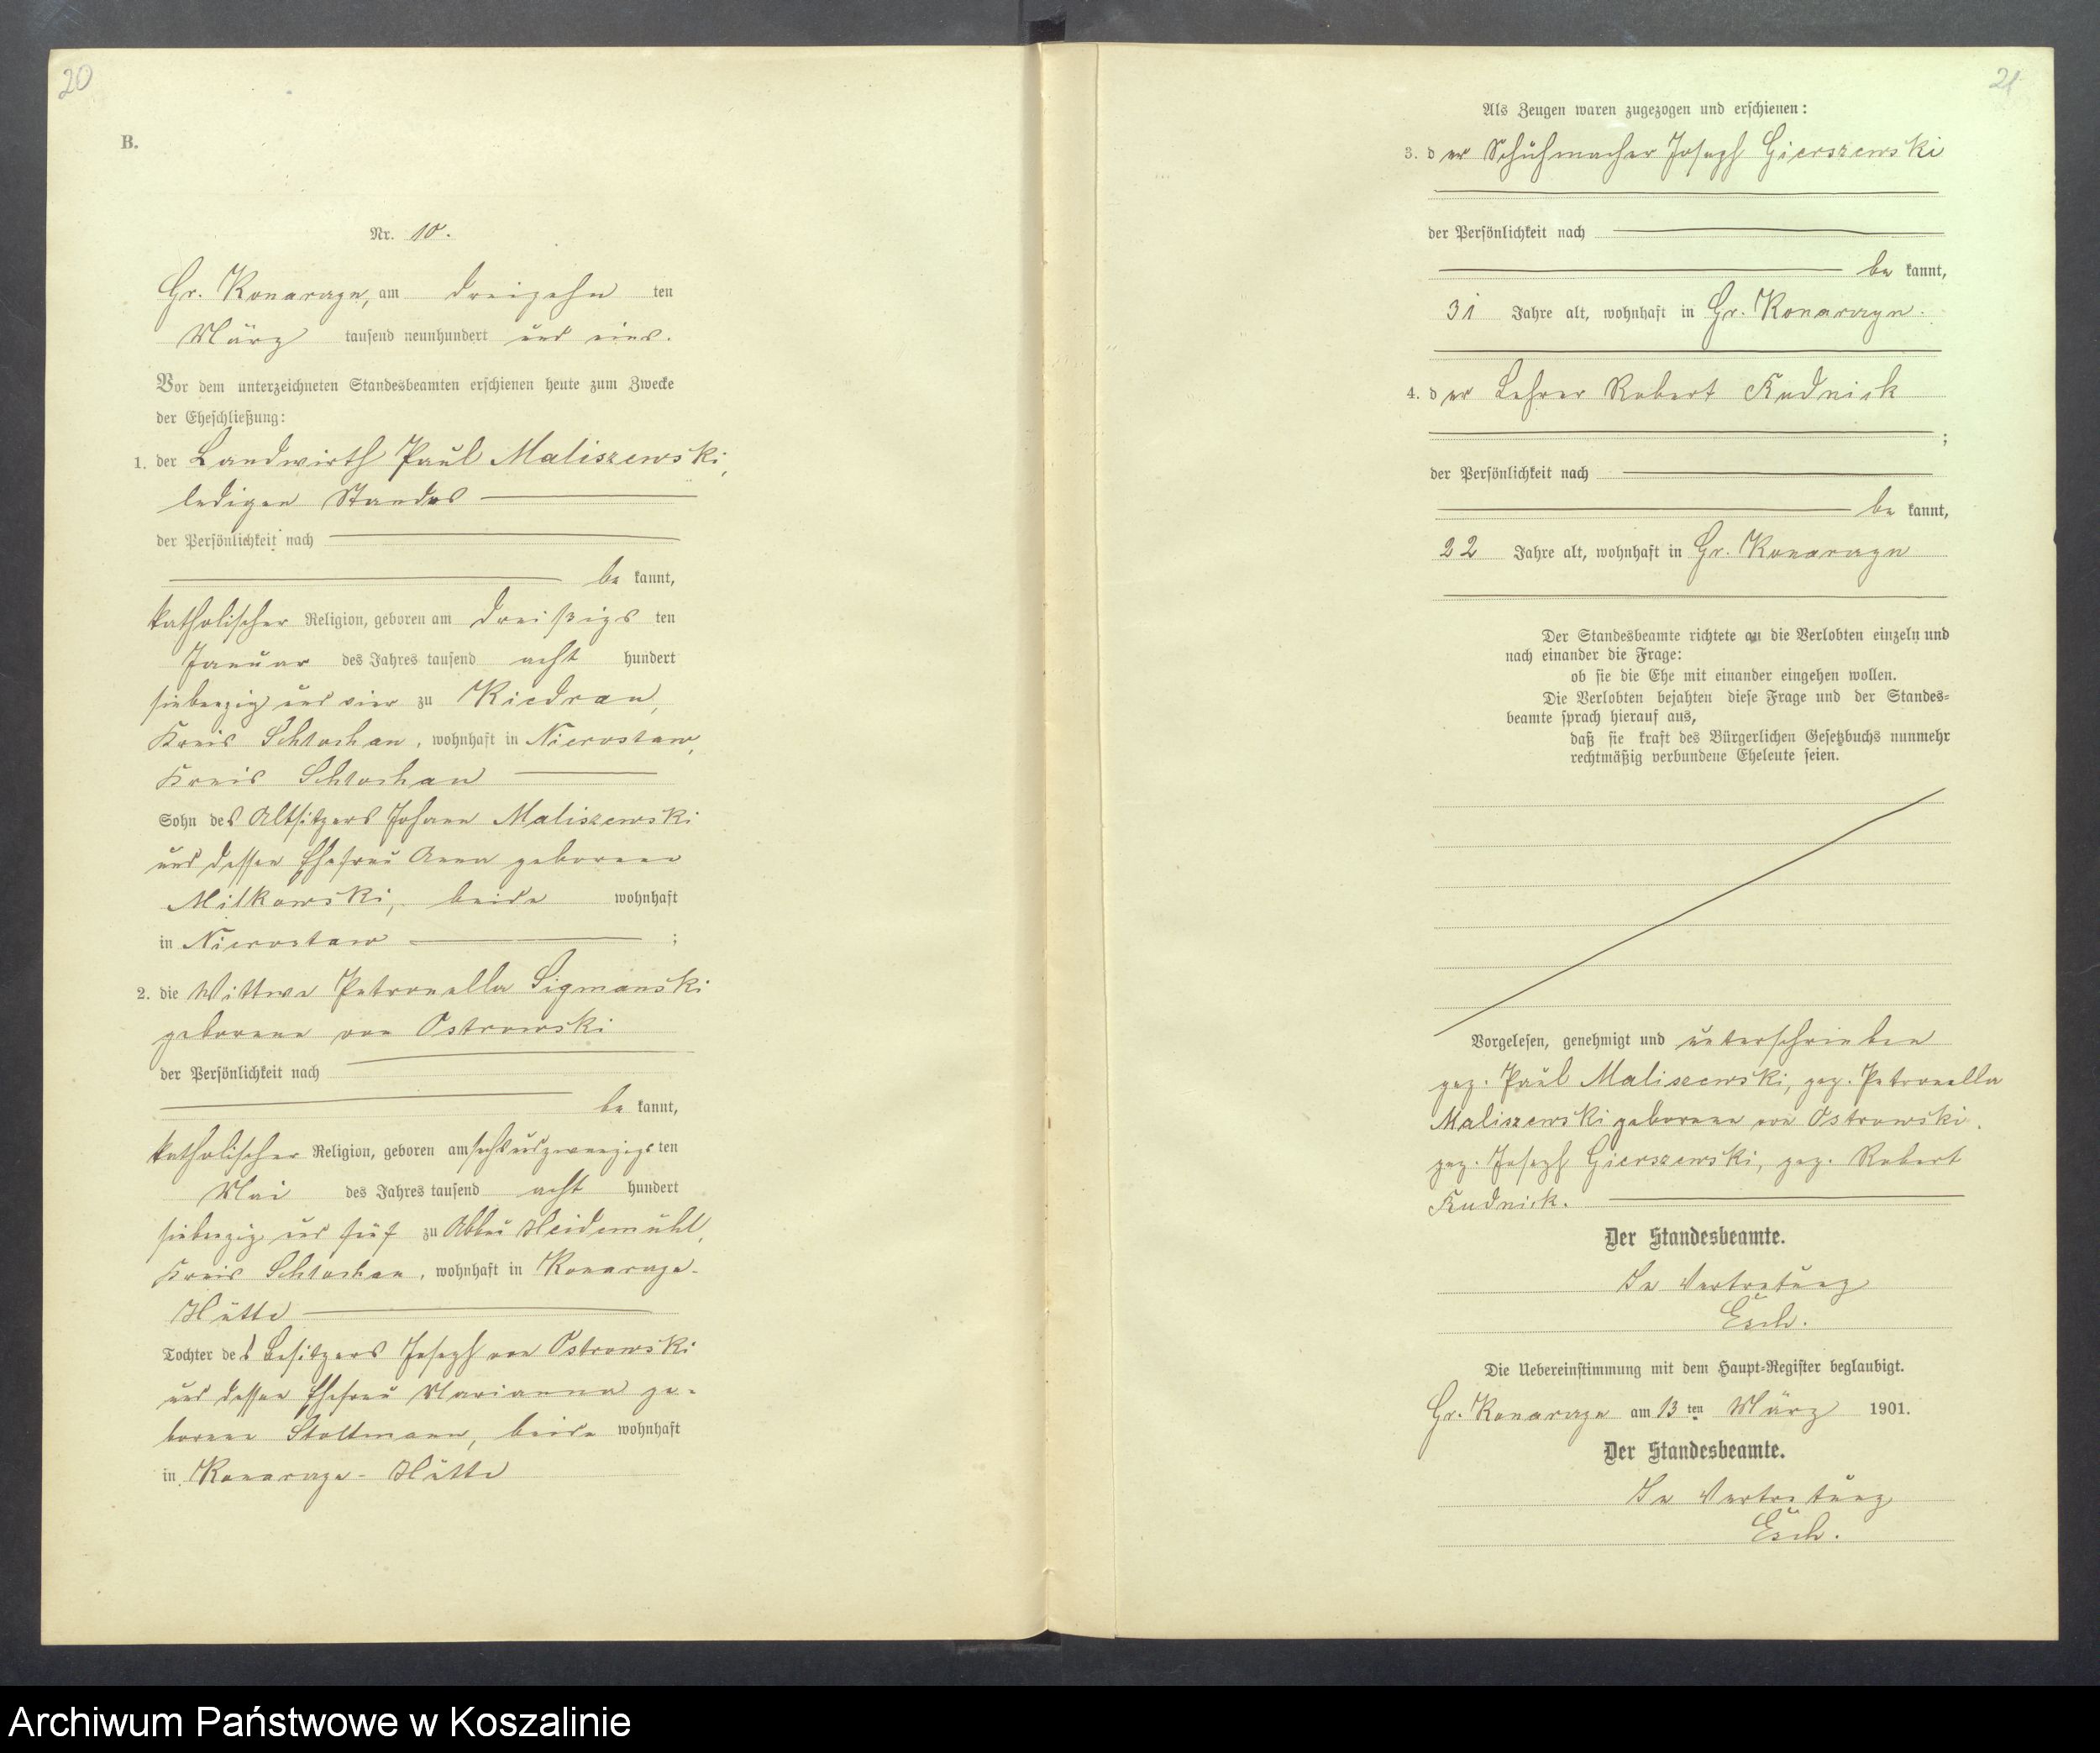 20
B.
Nr. 10.
Gr. Konarczyn, am dreizehn ten
März tausend neunhundert und eins.
Vor dem unterzeichneten Standesbeamten erschienen heute zum Zwecke
der Eheschließung:
1. der Landwirth Paul Maliszewski,
ledigen Standes
der Persönlichkeit nach
be kannt,
katholischer Religion, geboren am dreißigs ten
Januar des Jahres tausend acht hundert
siebenzig und vier zu Kiedrau,
Kreis Schlochau, wohnhaft in Nierostaw,
Kreis Schlochau
Sohn des Altsitzers Johann Maliszewski
und dessen Ehefrau Anna geborene
Milkowski, beide wohnhaft
in Nierostaw ;
2. die Wittwe Petronella Sigmanski
geborene von Ostrowski
der Persönlichkeit nach
be kannt,
katholischer Religion, geboren am sechsundzwanzigs ten
Mai des Jahres tausend acht hundert
siebenzig und fünf zu Abbau Heidemühl,
Kreis Schlochau, wohnhaft in Konarczyn-
Hütte
Tochter des Besitzers Joseph von Ostrowski
und dessen Ehefrau Marianna ge-
borene Stoltmann, beide wohnhaft
in Konarczyn-Hütte
21
Als Zeugen waren zugezogen und erschienen:
3. der Schuhmacher Joseph Gierszewski
der Persönlichkeit nach
be kannt,
31 Jahre alt, wohnhaft in Gr. Konarczyn.
4. der Lehrer Robert Rudnick
;
der Persönlichkeit nach
be kannt,
22 Jahre alt, wohnhaft in Gr. Konarczyn
Der Standesbeamte richtete an die Verlobten einzeln und
nach einander die Frage:
ob sie die Ehe mit einander eingehen wollen.
Die Verlobten bejahten diese Frage und der Standes=
beamte sprach hierauf aus,
daß sie kraft des Bürgerlichen Gesetzbuchs nunmehr
rechtmäßig verbundene Eheleute seien.
Vorgelesen, genehmigt und unterschrieben
gez. Paul Maliszewski, gez. Petronella
Maliszewski geborene von Ostrowski.
gez. Joseph Gierszewski, gez. Robert
Rudnick.
Der Standesbeamte.
In Vertretung
Esch.
Die Uebereinstimmung mit dem Haupt=Register beglaubigt.
Gr. Konarczyn am 13 ten März 1901.
Der Standesbeamte.
In Vertretung
Esch.
Archiwum Państwowe w Koszalinie